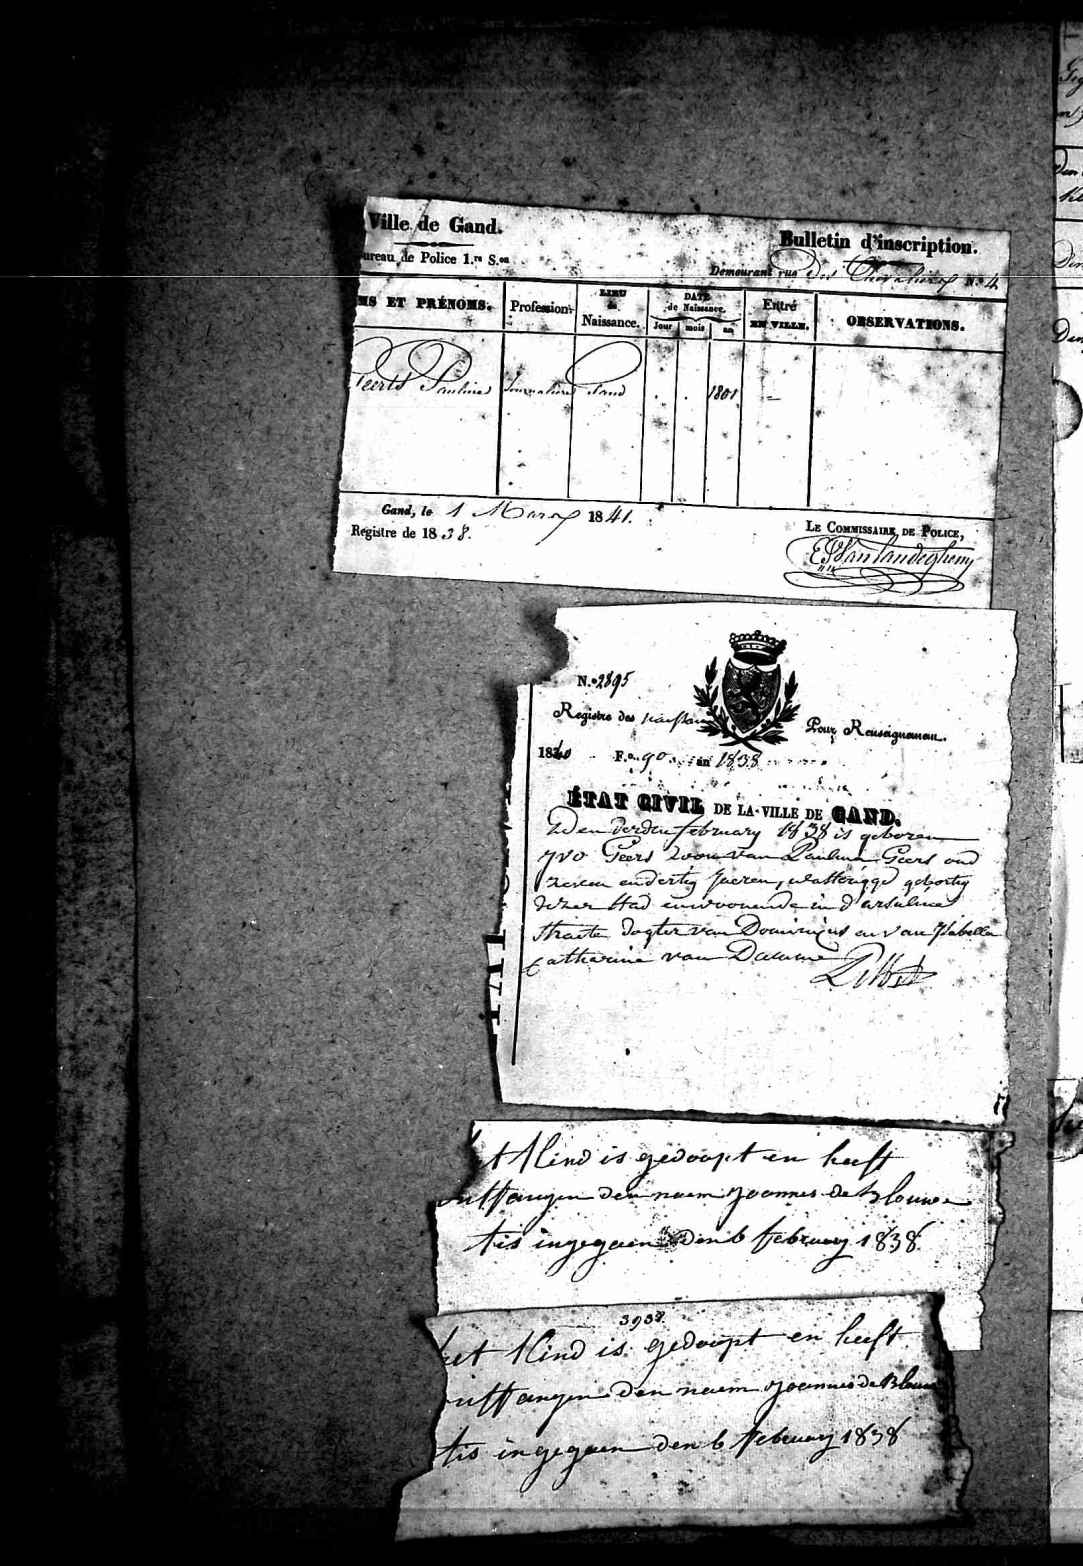 Ville de Gand.
Bulletin d'inscription.
ureau de Police 1.re S.on
Demeurant rue Des Chevaliers N.o 4
MS ET PRÉNOMS.
Profession.
LIEU de Naissance.
DATE de Naissance.
Jour mois an
Entré EN VILLE.
OBSERVATIONS.
eerts Pauline Journalière Gand . . 1801 –
Gand, le 1 Mars 1841.
Registre de 1838.
LE COMMISSAIRE DE POLICE,
N.o 2895
Registre des
Pour Renseignement.
1840 F.o 90 an 1838
ÉTAT CIVIL DE LA VILLE DE GAND.
Den derden february 1838 is geboren
yvo Geers zoon van Paulina Geers oud
zeven endertig Jaeren, geboortig
dezer stad en woonende in d'ursuline
straete dogter van Dominicus en van Isabella
Catharina van Damme
t Kind is gedoopt en heeft
ontfangen den naem joannes de Blauwe
tis ingegaen den 6 february 1838
3938.
het Kind is gedoopt en heeft
ontfangen den naem joannes de Blauw
tis ingegaen den 6 february 1838